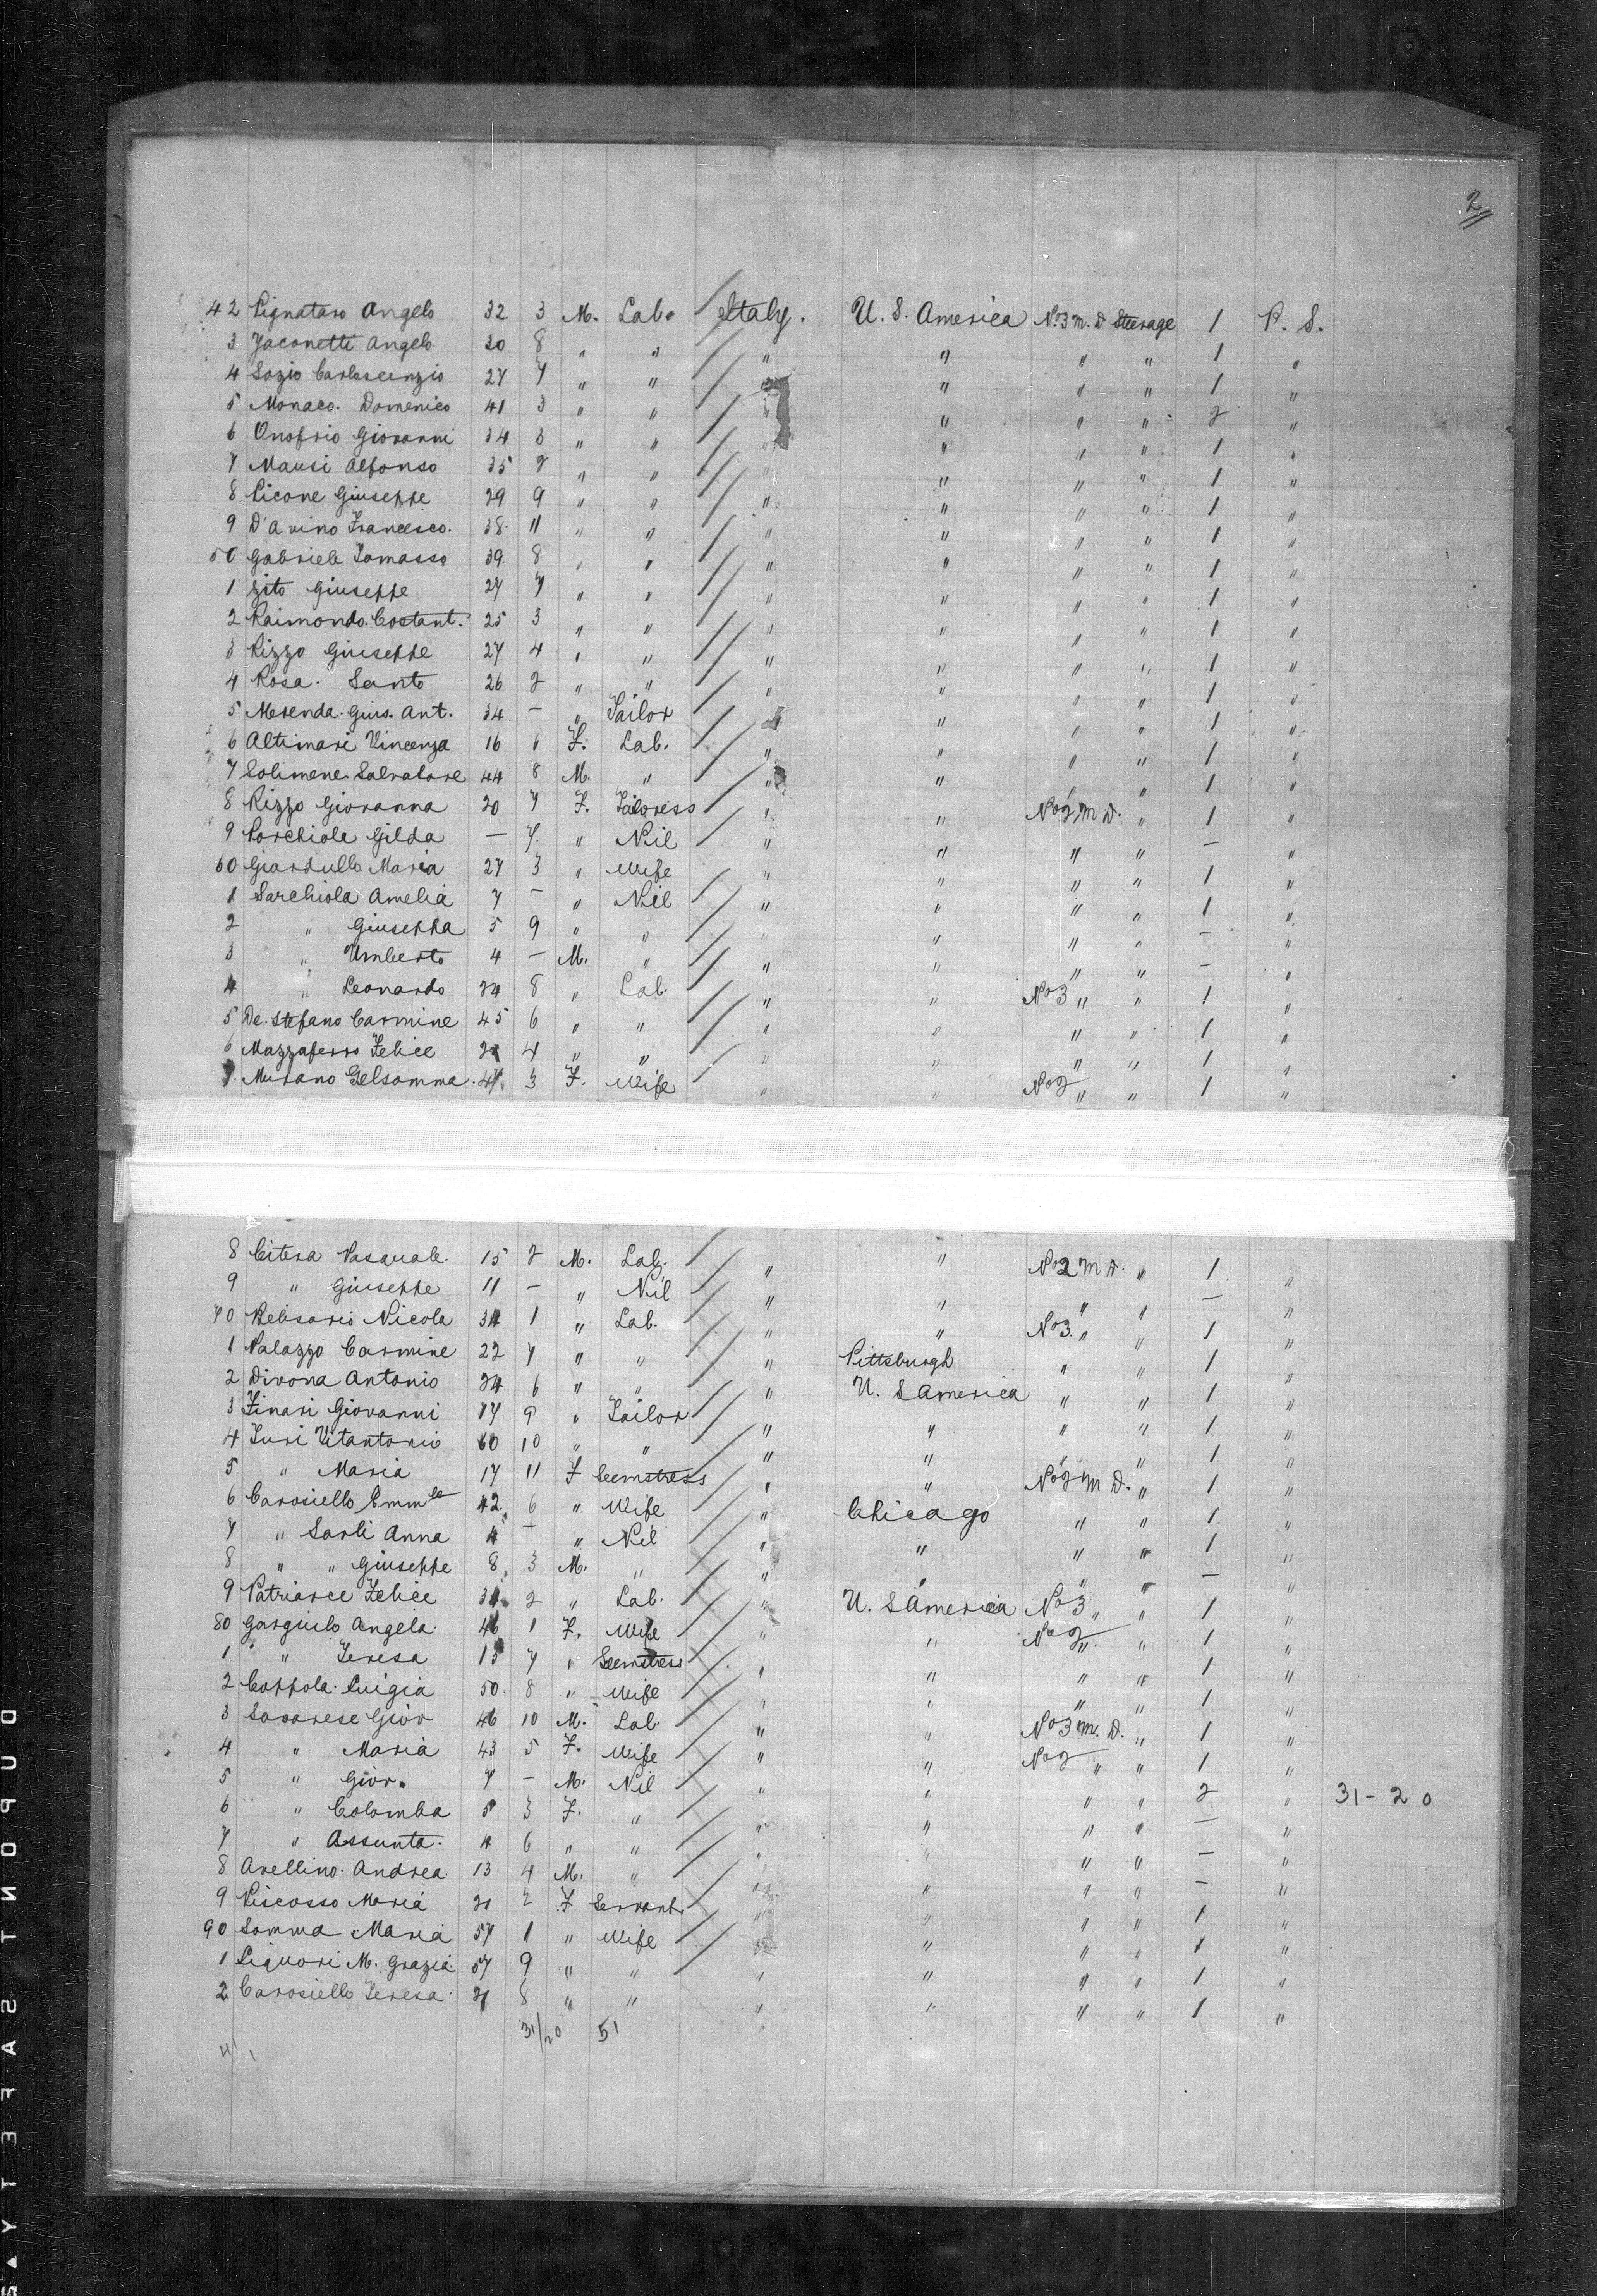 2
42 Pignataro Angelo 32 3 M. Lab. Italy. U. S. America No 3 m. D Steerage 1 P. S.
3 Jaconetti Angelo 30 8 " " " " " " 1 "
4 Sozio 27 7 " " " " " " 1 "
5 Monaco. Domenico 41 3 " " " " " " 2 "
6 Onofrio Giovanni 34 3 " " " " " " 1 "
7 Mausi Alfonso 35 2 " " " " " " 1 "
8 Picone Giuseppe 29 9 " " " " " " 1 "
9 D'Avino Francesco. 38 11 " " " " " " 1 "
50 Gabriele Tomasso 39 8 " " " " " " 1 "
1 Zito Giuseppe 27 7 " " " " " " 1 "
2 Raimondo Costant. 25 3 " " " " " " 1 "
3 Rizzo Giuseppe 27 4 " " " " " " 1 "
4 Rosa. Santo 26 2 " " " " " " 1 "
5 Merenda. Gius. Ant. 34 — " Tailor " " " 1 "
6 Altimari Vincenza 16 6 F. Lab. " " " " 1 "
7 Solimene Salvatore 44 8 M. " " " " 1 "
8 Rizzo Giovanna 20 7 F. Tailoress " " No 2 M D. " 1 "
9 Porchiole Gilda — 7. " Nil " " " " — "
60 Giardullo Maria 27 3 " Wife " " " " 1 "
1 Sarchiola Amelia 7 — " Nil " " " " 1 "
2 " Giuseppa 5 9 " " " " " — "
3 " Umberto 4 — M. " " " " " — "
4 " Leonardo 34 8 " Lab. " " No 3 " " 1 "
5 De. Stefano Carmine 45 6 " " " " " " 1 "
6 Mazzaferro Felice 4 " " " " " " 1 "
7. Murano Gelsomma. 47 3 F. Wife " " No 2 " " 1 "
8 Citera Pasquale. 15 2 M. Lab. " " No 2 M D. " 1 "
9 " Giuseppe 11 — " Nil " " " " — "
70 Belisario Nicola 34 1 " Lab. " " No 3. " " 1 "
1 Palazzo Carmine 22 7 " " " Pittsburgh " " 1 "
2 Divona Antonio 24 6 " " " U. S America " " 1 "
3 Finari Giovanni 17 9 " Tailor " " " " 1 "
4 Turi Vitantonio 60 10 " " " " " 1 "
5 " Maria 17 11 F Seemstress " " No 2 M D. " 1 "
6 Carosiello Emmla 42 6 " Wife " Chicago " " 1 "
7 " Sarli Anna 4 — " Nil " " " " 1 "
8 " " Giuseppe 8 3 M. " " " " " — "
9 Patriarce Felice 31 2 " Lab. " U. S America No 3 " " 1 "
80 Garguilo Angela. 46 1 F. Wife " " No 2 " " 1 "
1 " Teresa 15 7 " Seemstress " " " " 1 "
2 Coppola. Luigia 50 8 " Wife " " " " 1 "
3 Savarese Giov 46 10 M. Lab. " " No 3 M. D. " 1 "
4 " Maria 43 5 F. Wife " " No 2 " " 1 "
5 " Giov. 7 — M. Nil " " " " 2 " 31-20
6 " Colomba 5 3 F. " " " " " — "
7 " Assunta. 4 6 " " " " " " — "
8 Avellino. Andrea 13 4 M. " " " " " — "
9 Piscosso Maria 21 2 F Servant. " " " " 1 "
90 Somma Maria 57 1 " Wife " " " " 1 "
1 Liquori M. Grazia 57 9 " " " " " " 1 "
2 Carosiello Teresa. 21 8 " " " " " " 1 "
31/20 51
DUPONT SAFETY